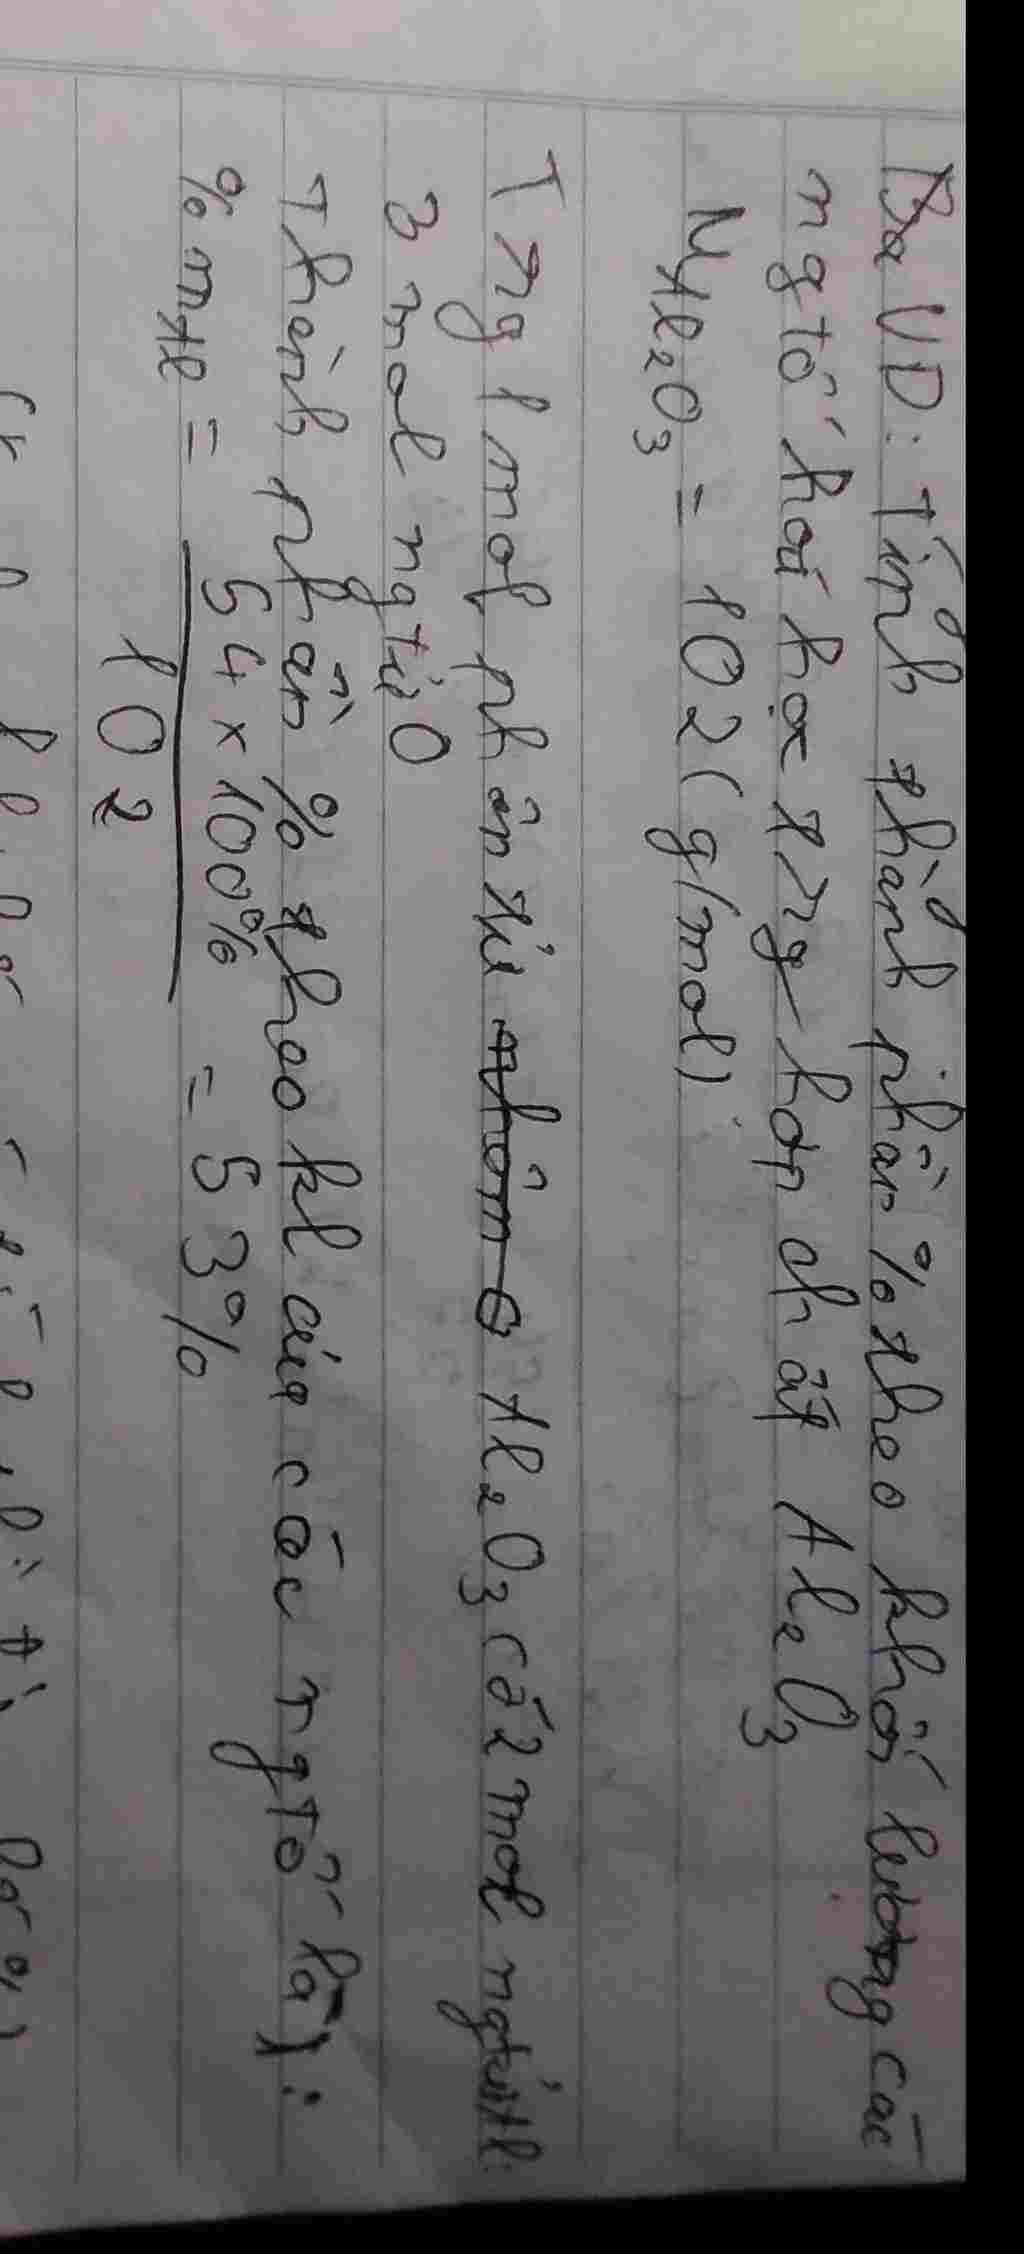 VD: Tính thành phần % theo khối lượng các
ngtố hoá học trg hợp chất Al₂O₃
M Al₂O₃ = 102 (g/mol)
Trg 1 mol phân tử Al₂O₃ có 2 mol ngtử Al
3 mol ngtử O
Thành phần % theo kl của các ngtố là:
% mAl = 54 x 100% / 102 = 53%